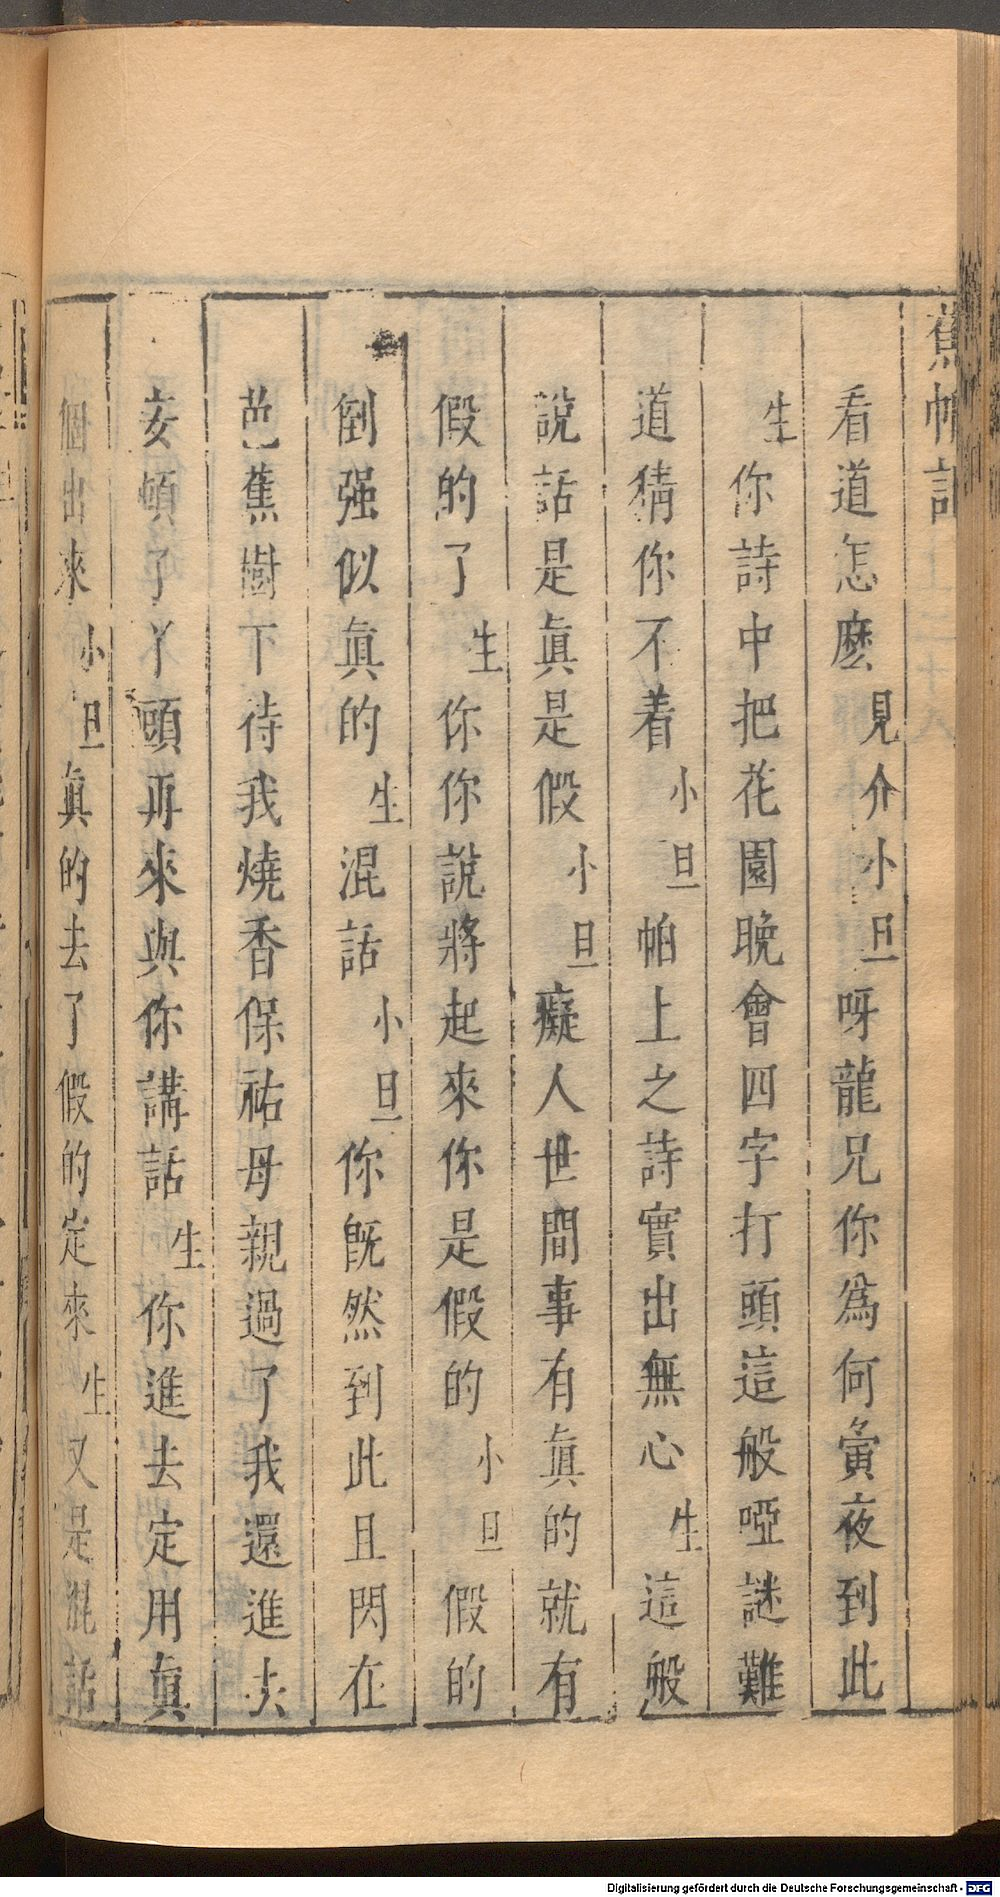 蕉帕記
看道怎麽見介小旦呀龍兄你爲何夤夜到此
生你詩中把花園晚會四字打頭這般啞謎難
道猜你不着小旦帕上之詩實出無心生這般
說話是眞是假小旦癡人世間事有眞的就有
假的了生你你說將起來你是假的小旦假的
倒强似眞的生混話小旦你旣然到此且閃在
芭蕉樹下待我燒香保祐母親過了我還進去
安頓了丫頭再來與你講話生你進去定用眞
個出來小旦眞的去了假的定來生又是混話
Digitalisierung gefördert durch die Deutsche Forschungsgemeinschaft - DFG